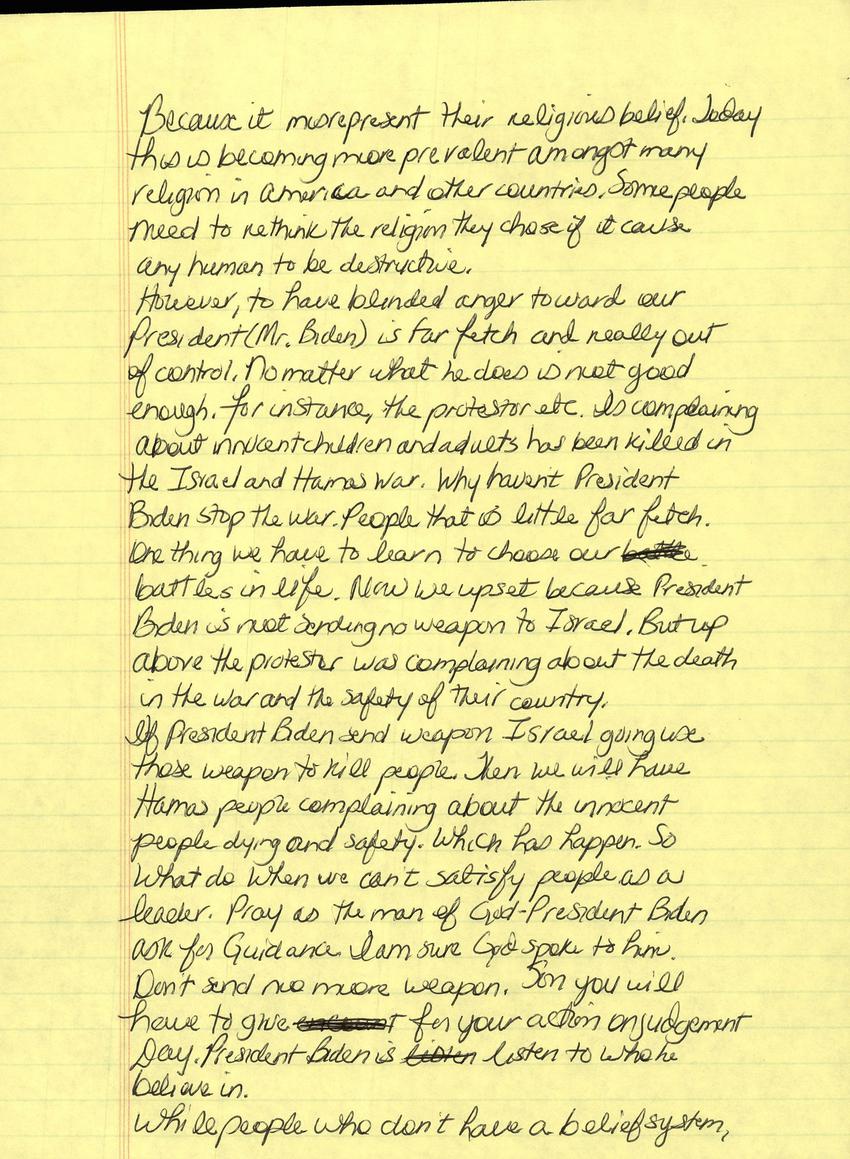 Because it misrepresent their religious belief. Today
this is becoming more prevalent amongst many
religion in America and other countries. Some people
need to rethink the religion they chose if it cause
any human to be destructive.
However, to have blinded anger toward our
President (Mr. Biden) is far fetch and really out
of control. No matter what he does is not good
enough. For instance, the protestor etc. Is complaining
about innocent children and adults has been killed in
the Israel and Hamas war. Why haven't President
Biden stop the war. People that is little far fetch.
One thing we have to learn to choose our
battles in life. Now we upset because President
Biden is not sending no weapon to Israel. But up
above the protester was complaining about the death
in the war and the safety of their country.
If President Biden send weapon Israel going use
those weapon to kill people. Then we will have
Hamas people complaining about the innocent
people dying and safety. Which has happen. So
What do when we can't satisfy people as a
leader. Pray as the man of God-President Biden
ask for Guidance. I am sure God spoke to him.
Don't send no more weapon. Son you will
have to give for your action on judgement
Day. President Biden is listen to who he
believe in.
While people who don't have a belief system,